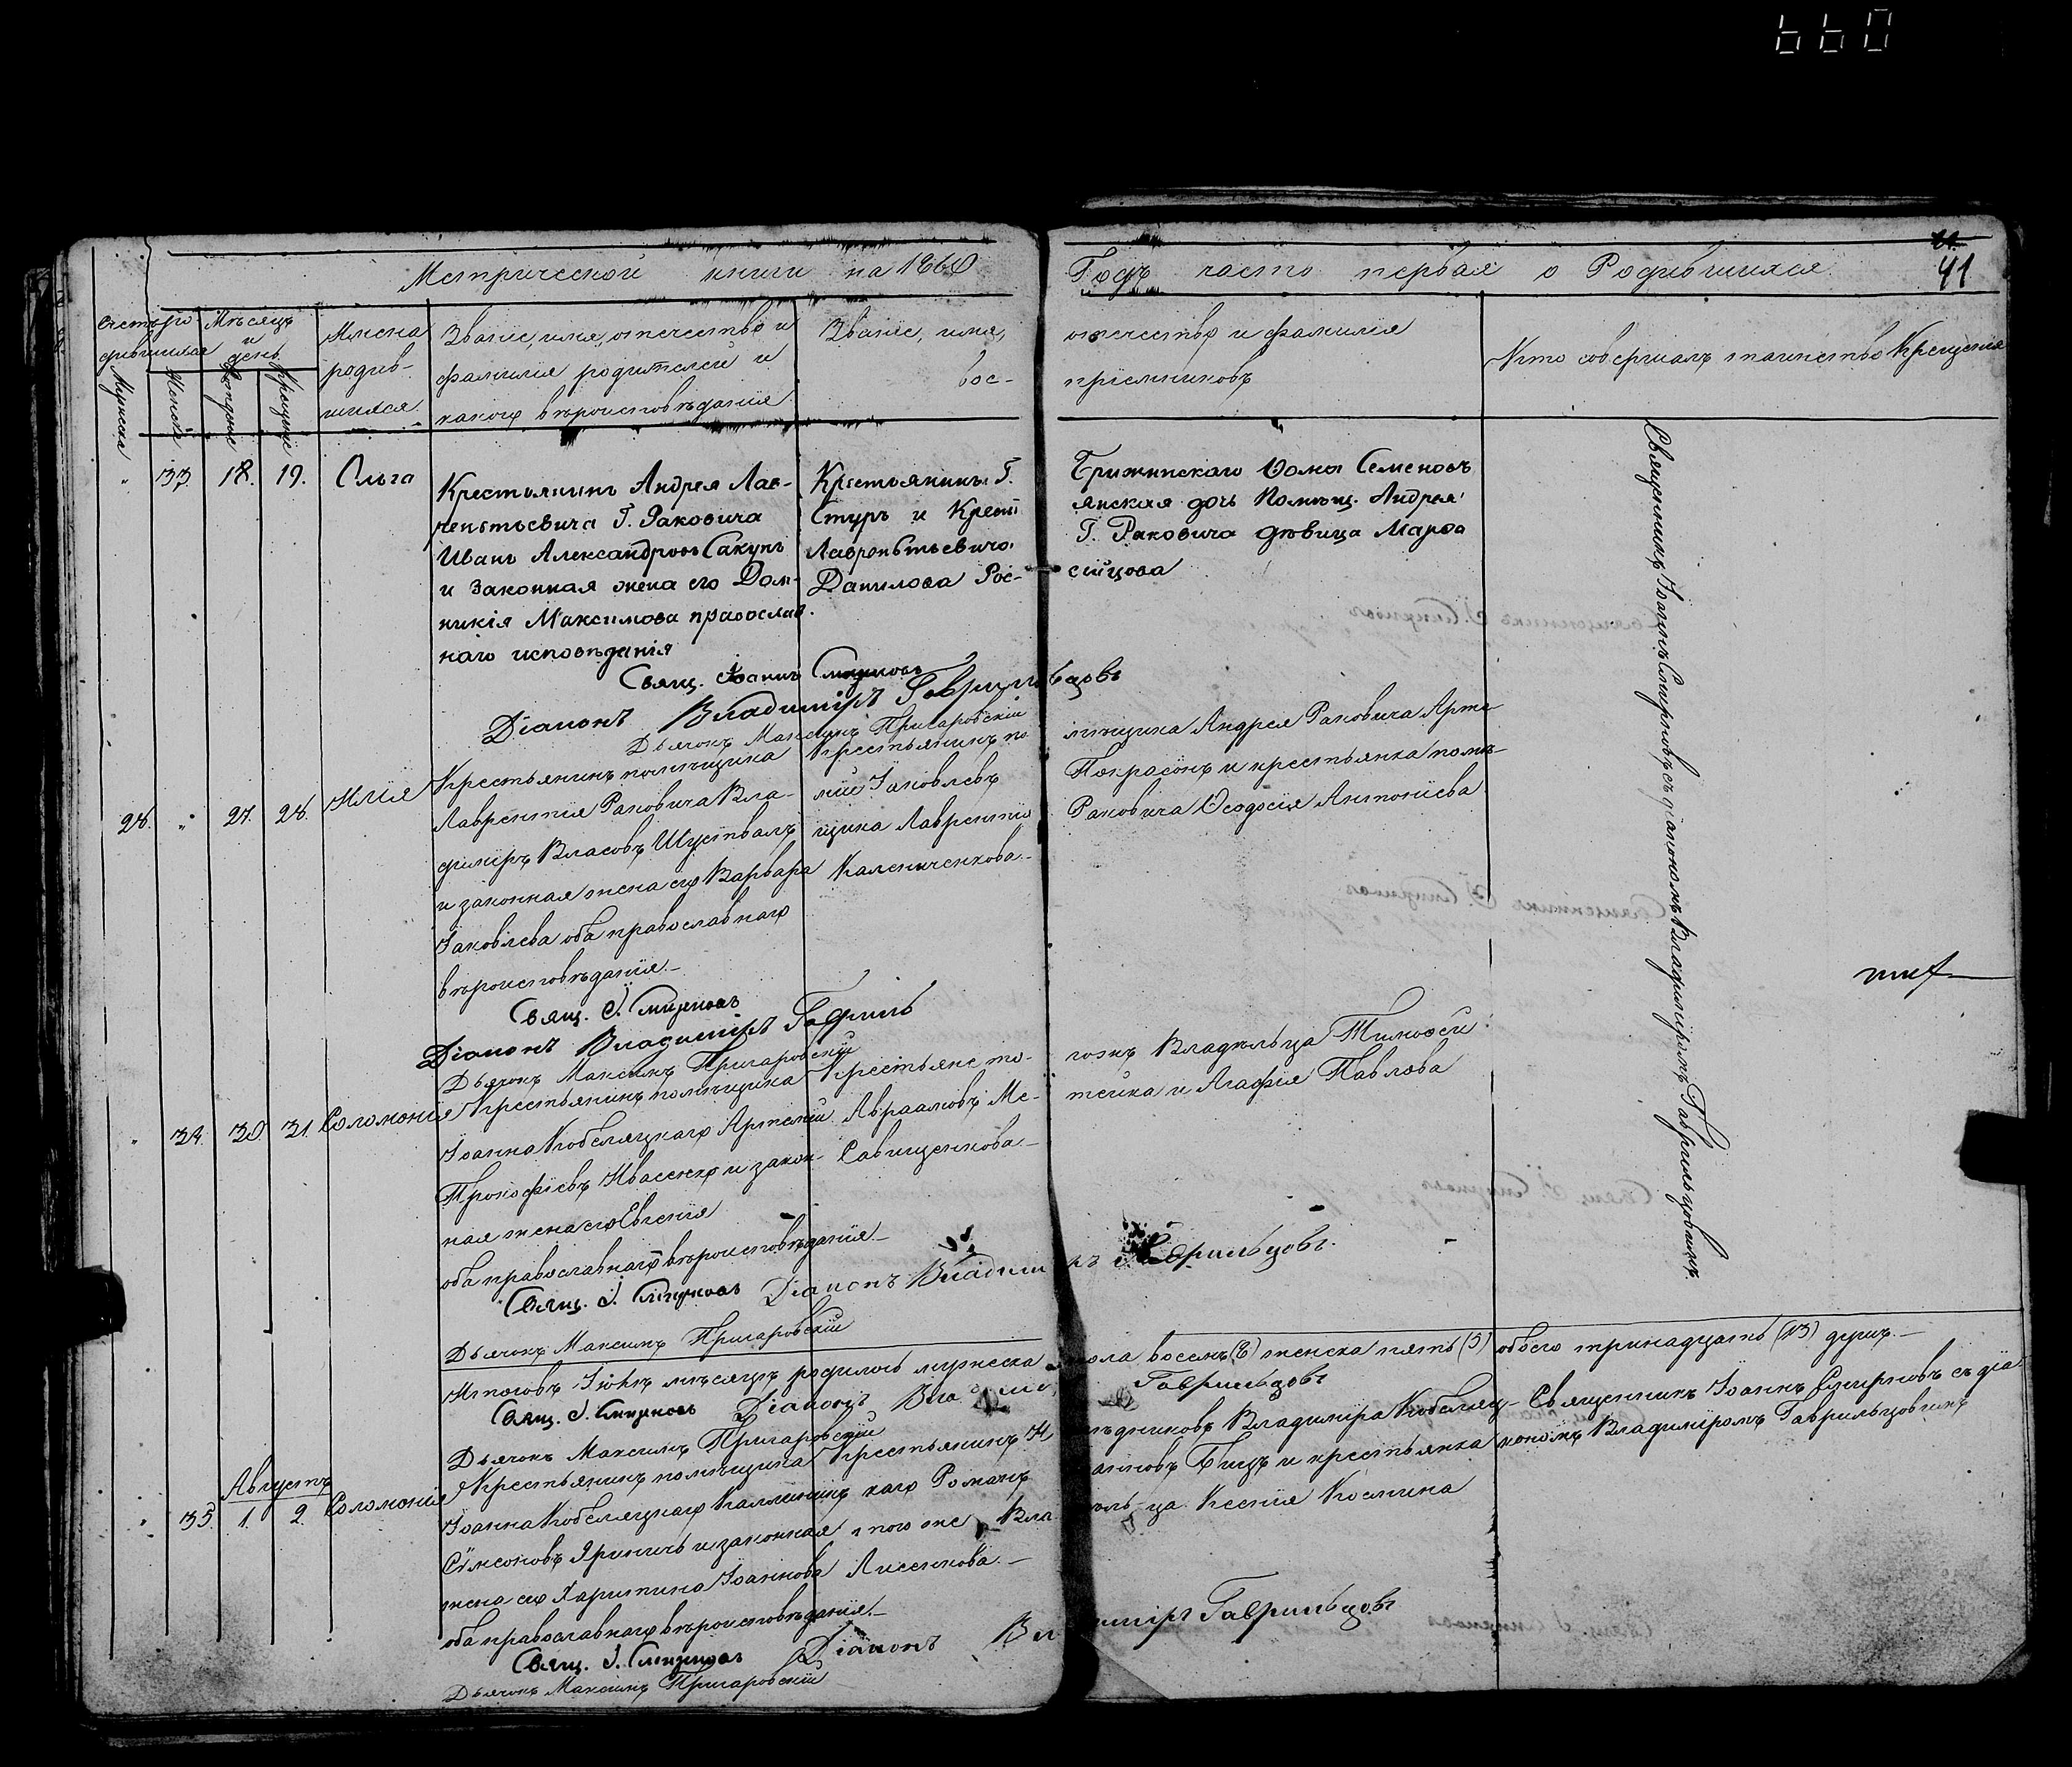 41
Метрической книги на 1860
Годъ часть первая о Родившихся
Счетъ родившихся
Мужска
Женска
Мѣсяцъ и день
Рожденіе
Крещеніе
Имена родив-
шихся
Званіе, имя, отечество и
фамилія родителей и
какого вѣроисповѣданія
Званіе, имя,
вос-
отечество и фамилія
пріемниковъ
Кто совершалъ таинство Крещенія
33. 18. 19. Ольга
Крестьянинъ Андрея Лав-
рентьевича Г. Раковича
Иванъ Александровъ Сакунъ
и законная жена его Дом-
никія Максимова православ-
наго исповѣданія
Крестьянинъ Г.
Стуръ и Крест
Лаврентьевича
Данилова Рос-
Ѳома Семеновъ
янская дочь Помѣщ. Андрея
Г. Раковича дѣвица Марѳа
сійцова
Священникъ Іоаннъ Смирновъ съ діакономъ Владиміромъ Гаврильцовимъ
Свящ. Іоаннъ Смирновъ
Діаконъ Владиміръ Гаврильцовъ
Дьячокъ Максимъ Пригаровскій
28. 27. 28. Илія
Крестьянинъ помѣщика
Лаврентія Раковича Вла-
диміръ Власовъ Шуствалъ
и законная жена его Варвара
Іаковлева оба православнаго
вѣроисповѣданія.
Крестьянинъ по
мій Іаковлевъ
щика Лаврентія
Калениченкова
мѣщика Андрея Раковича Арте
Покрасонъ и крестьянка помѣ-
Раковича Ѳеодосія Антоніева
Свящ. І. Смирновъ
Діаконъ Владиміръ Гавриль
Дьячокъ Максимъ Пригаровскій
34. 30. 31. Соломонія
Крестьянинъ помѣщика
Іоанна Кобеляцкаго Артемій
Прокофіевъ Ивасенко и закон-
ная жена его Евгенія
оба православнаго вѣроисповѣданія.
Крестьяне то-
Авраамовъ Ме-
Савищенкова
гожъ Владѣльца Тимоѳей
тейка и Агафія Павлова
Свящ. І. Смирновъ Діаконъ Владиміръ Гаврильцовъ.
Дьячокъ Максимъ Пригаровскій
Итоговъ Іюлѣ мѣсяцѣ родилось мужеска пола восемъ (8) женска пять (5) обоего тринадцать (13) душъ.
Свящ. І. Смирновъ Діаконъ Гаврильцовъ
Дьячокъ Максимъ Пригаровскій
Августъ
35. 1. 2. Соломонія
Крестьянинъ помѣщика
Іоанна Кобеляцкаго Каллиникъ
Сѵмсоновъ Яриничь и законная
жена его Харитина Іоаннова
оба православнаго вѣроисповѣданія.
Крестьянинъ Н
каго Романъ
того же Вла
Лисенкова.
ѣдниковъ Владиміра Кобеляц-
анновъ Бицъ и крестьянка
ѣльца Ксенія Космина
Священникъ Іоаннъ Смирновъ съ діа
кономъ Владиміромъ Гаврильцовимъ
Свящ. І. Смирновъ Діаконъ Владиміръ Гаврильцовъ
Дьячокъ Максимъ Пригаровскій